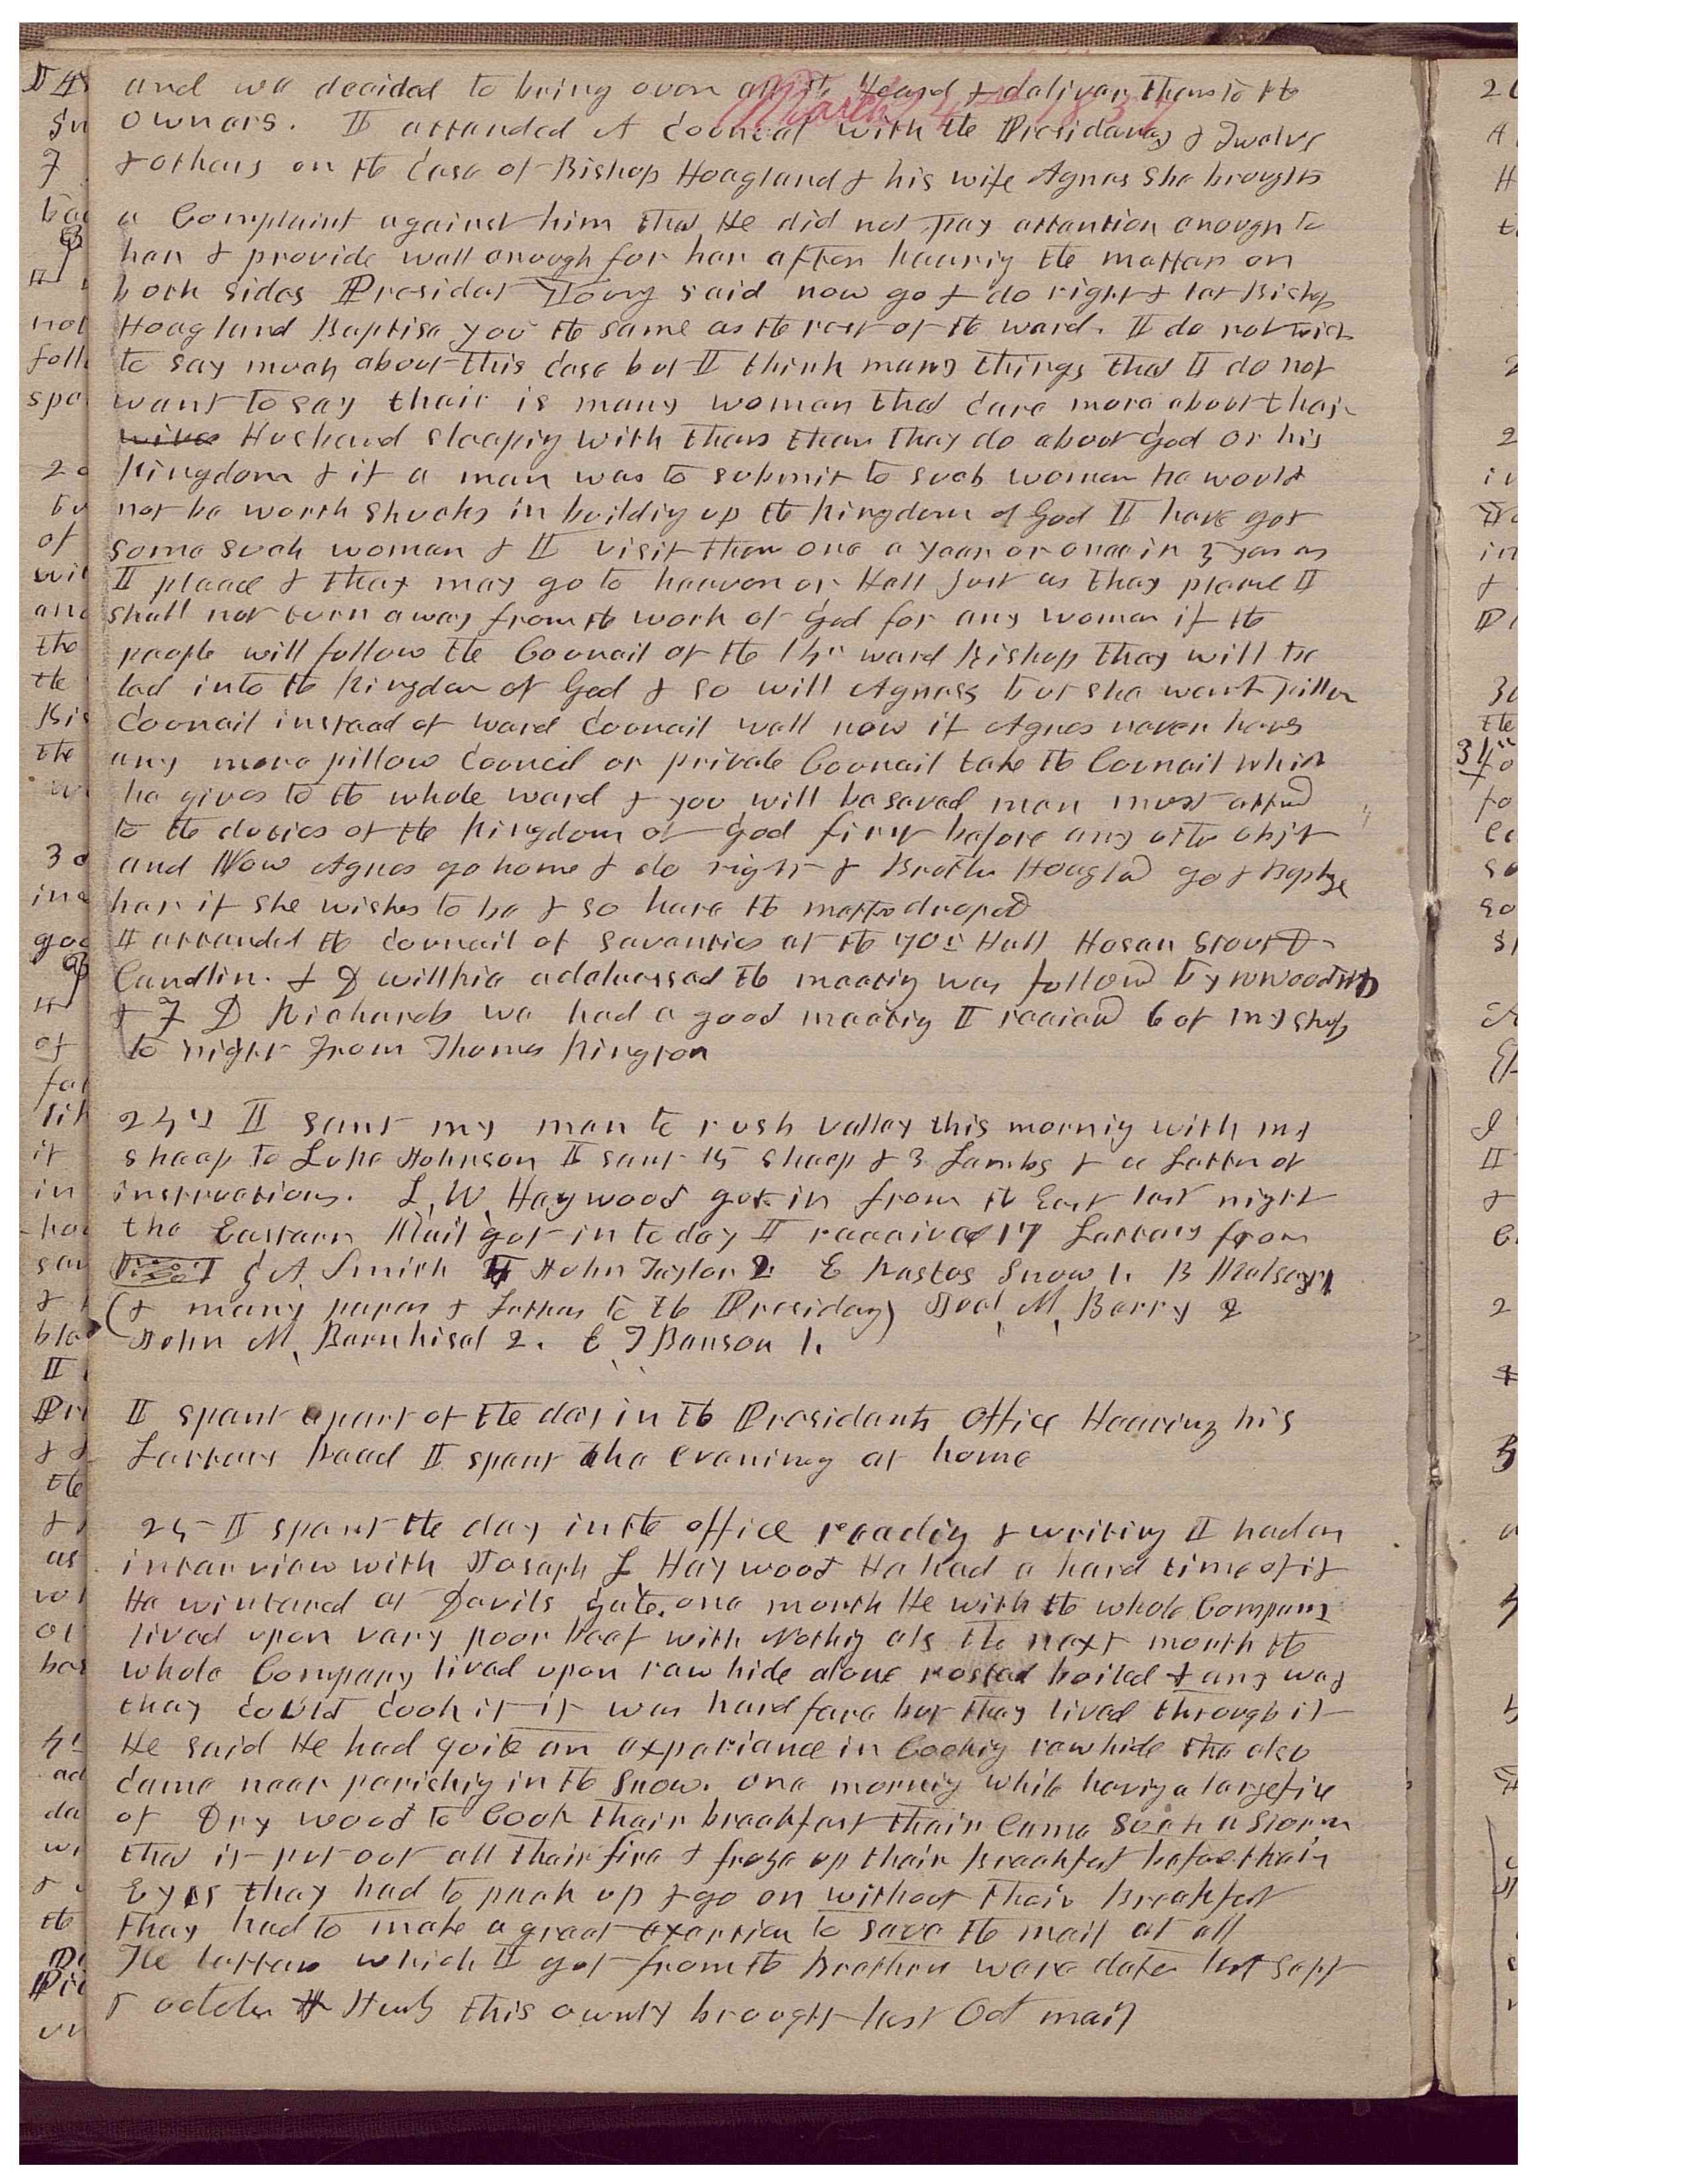 March 4th 1857
and we decided to bring over all the Heard & deliver them to the
owners. I attended A Councel with the Presidency & Twelve
& others on the case of Bishop Hoagland & his wife Agnes She brought
a Complaint against him that He did not pay attention enough to
her & provide well enough for her after hearing the matter on
both sides Presidet Young said now go & do right & let Bishop
Hoagland Baptise you the same as the rest of the ward. I do not wish
to say much about this case but I think many things that I do not
want to say their is many women that care more about their
wives Husband sleeping with them than they do about God or his
kingdom & if a man was to submit to such women he would
not be worth shucks in buildig up the kingdom of God I have got
some such women & I visit them one a year or once in 5 years as
I pleace & they may go to heaven or Hell just as they pleace I
shall not turn away from the work of God for any woman if the
people will follow the Council of the 14th ward Bishop they will be
led into the kingdom of God & so will Agness but she want pillow
Council instead of ward Council well now if Agnes never haves
any more pillow Council or private Council take the Council which
he gives to the whole ward & you will be saved men must attend
to the duties of the kingdom of God first before any other objt
and Now Agnes go home & do right & Brother Hoagland go & baptize
her if she wishes to be & so have the matter droped
I attended the council of Seventies at the 70s Hall Hosea Stout D
Candlin. & D Willkie addressed the meetig was followed by W Woodruff
& F D Richards we had a good meetig I received 6 of my sheep
to night from Thomas Kington
24th I sent my man to rush valley this mornig with my
sheep to Luke Johnson I sent 15 sheep & 3 Lambs & a Letter of
instructions. L. W. Haywood got in from the East last night
the Eastern Mail got in to day I received 17 Letters from
G A Smith 4 John Taylor 2 E Rastos Snow 1. B
(& many papers & Letters to the Presidency) M. Berry 2
John M. Bernhisel 2. E T Benson 1.
I spent a part of the day in the Presidents Office Hearing his
Letters Read I spent the evening at home
25 I spent the day in the office readig & writing I had an
interview with Joseph L Haywood He had a hard time of it
He wintered at Devils gate. one month He with the whole Company
lived upon very poor beef with Nothig els the next month the
whole Company lived upon raw hide alone rosted boiled & any way
they could cook it it was hard fare but they lived through it
He said He had quite an experiance in Cookig rawhide the also
came near perishig in the snow. one mornig while havig a large fire
of Dry wood to Cook their breakfast their came such a storm
that it put out all their fire & froze up their breakfast before their
Eyes they had to pack up & go on without their Breakfast
They had to make a great exertion to save the mail at all
The letters which I got from the Brethren were date last Sept
& October this ownly brought last Oct mail